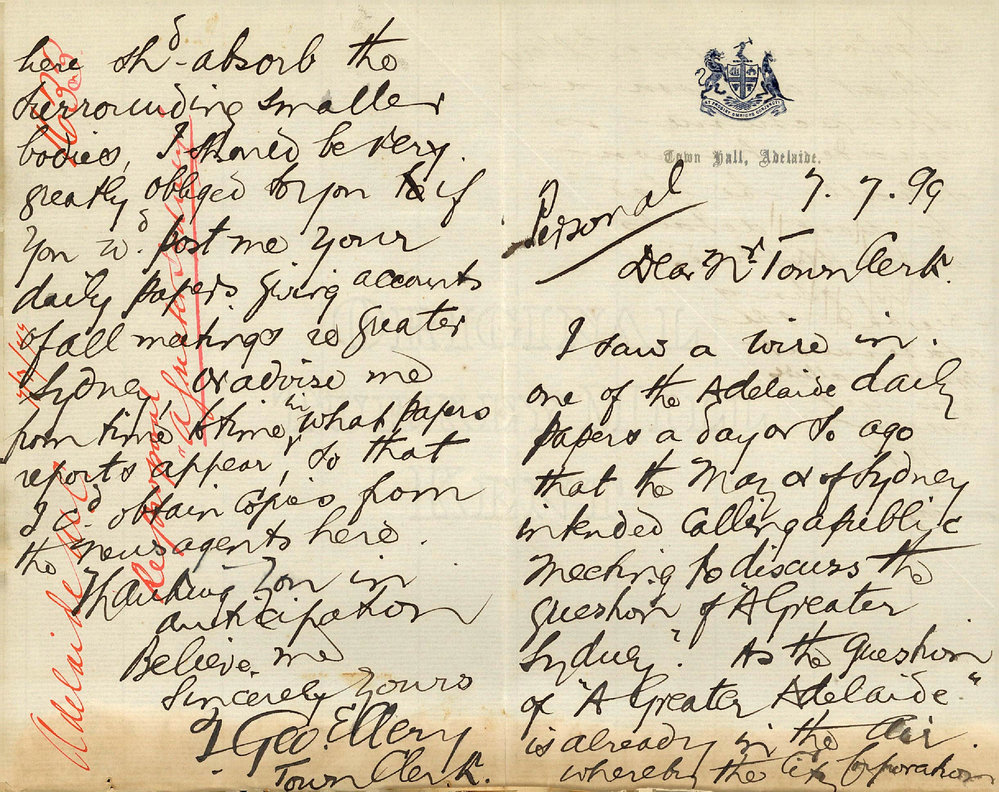 Town Hall, Adelaide.
7.7.99
Personal
Dear Mr Town Clerk.
I saw a wire in
one of the Adelaide daily
papers a day or so ago
that the Mayor of Sydney
intended calling a public
Meeting to discuss the
question of "A Greater
Sydney". As the question
of "A Greater Adelaide"
is already in the air
whereby the City Corporation
here shd absorb the
surrounding smaller
bodies, I should be very
greatly obliged to you if
you wd post me your
daily papers giving accounts
of all meetings re greater
Sydney, or advise me
from time to time in what papers
reports appear, so that
I cd obtain copies from
the news agents here.
Thanking you in
anticipation
Believe me
Sincerely Yours
T Geo. Ellery
Town Clerk.
Adelaide